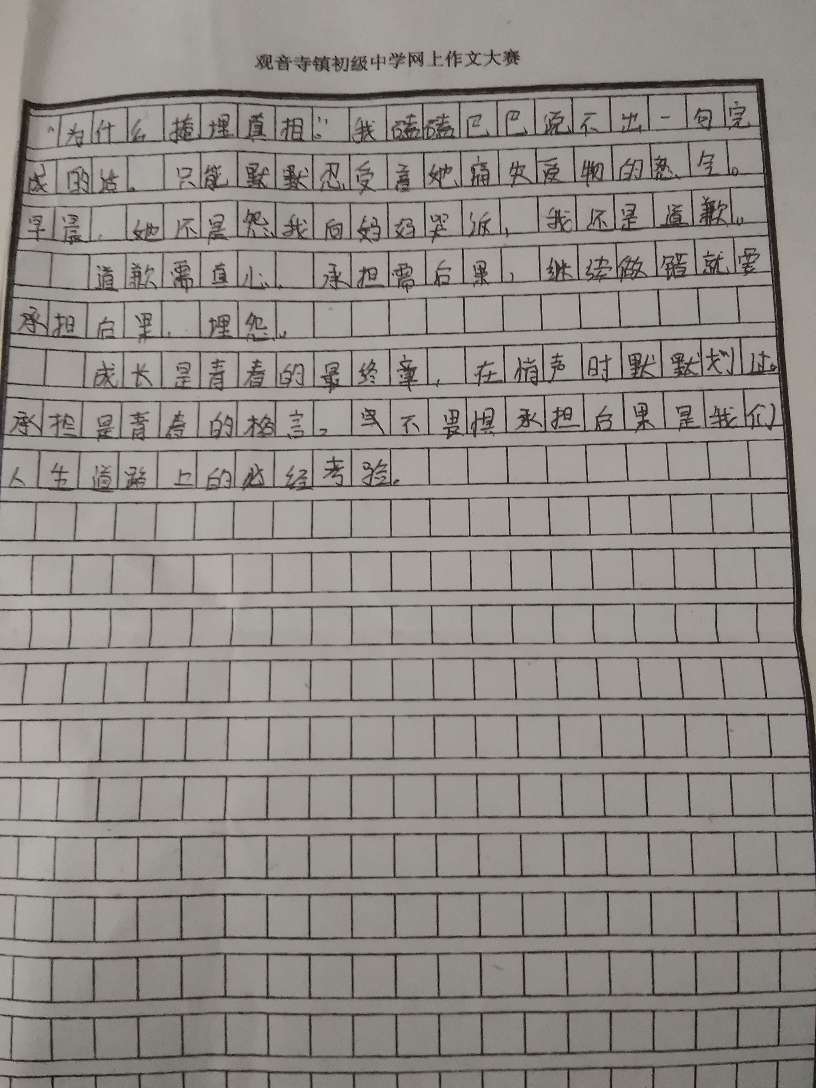 观音寺镇初级中学网上作文大赛
"为什么掩埋真相"我磕磕巴巴说不出一句完
成的话。只能默默忍受着她痛失爱物的怒气。
早晨,她还是怨我向妈妈哭诉,我还是道歉。
道歉需真心,承担需后果,继续做错就要
承担后果,埋怨。
成长是青春的最终章,在悄声时默默划过。
承担是青春的格言。不畏惧承担后果是我们
人生道路上的必经考验。